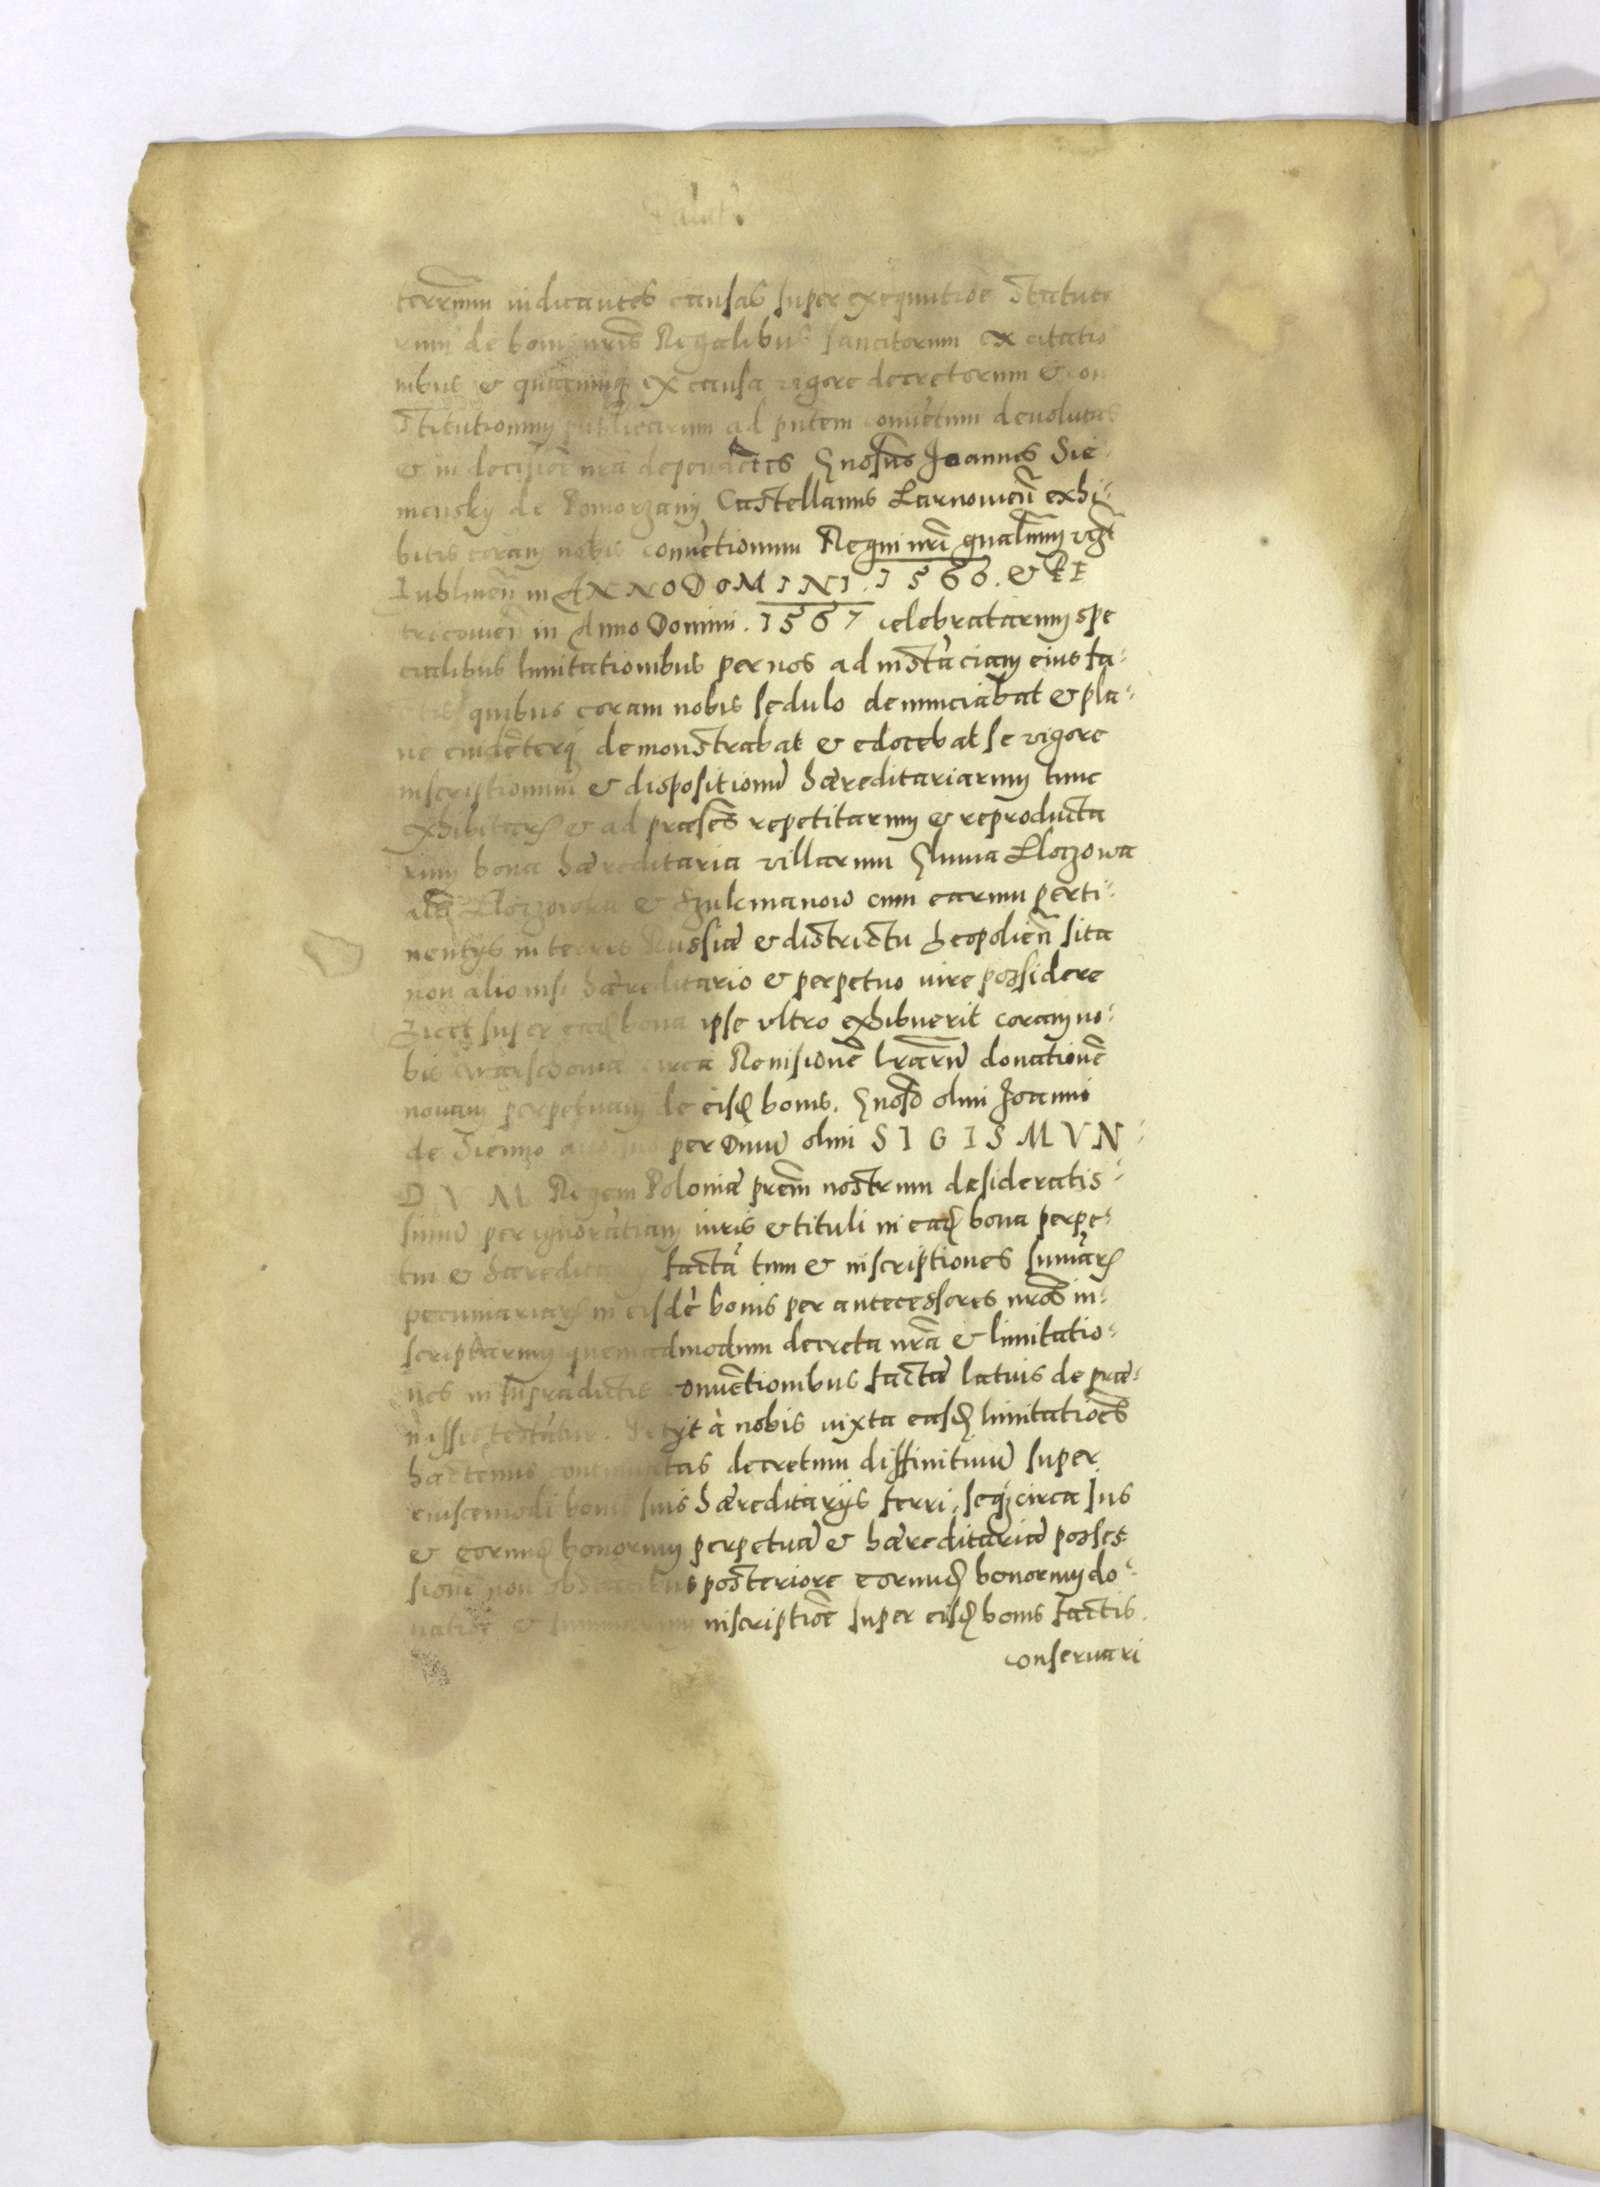 terrarum iudicantes causas super exequutioē Statuto
rum de bonis nr̄is Regalibus sancitorum ex citatio
nibus & quacunq ex causa vigore decretorum & con
Stitutionum publicarum ad pn̄tem conuētum deuolutas
& in decisioē nrā dependētes Gn̄osus Joannes Sie
miensky de Pomorzany Castellanus Larnouień exhi-
bitis coram nobis conuētionum Regni nr̄i
Lublineń in ANNO DOMINI. 1566. & PE
tricouień in Anno Domini. 1567 celebratarum spe
cialibus limitationibus per nos ad instāciam eius fa-
quibus coram nobis sedulo denunciabat & pla-
ne euidēterq demonstrabat & edocebat se vigore
inscriptionum & dispositionū hæreditariarum tunc
exhibitarꝝ & ad præsēs repetitarum & reproducta
rum bona hæreditaria villarum Hluma Lloczowa
als Lloczowka & Szulimanow cum earum perti-
nentijs in terris Russiæ & districtu Leopolień sita
non alio nisi hæreditario & perpetuo iure possidere
Licet super eadē bona ipse vltro exhibuerit coram no-
bis Warschouiæ circa Reuisionē lrarū donationē
nouam perpetuam de eisdē bonis. Gn̄oso olim Joanni
de Sienno per Diuū olim SIGISMVN-
DVM Regem Poloniæ prem̄ nostrum desideratis-
simū per ignorātiam iuris & tituli in eadē bona perpe-
tui & hæreditarij factā tum & inscriptiones sum̄arꝝ
pecuniariarꝝ in eisdē bonis per antecessores nr̄os in-
scriptarum quemadmodum decreta nrā & limitatio-
nes in supradictis conuētionibus factæ latius de præ-
missis testātur. Petijt à nobis iuxta easdē limitatioēs
hactenus continuatas decretum diffinitiuū super
eiuscemodi bonis suis hæreditarijs ferri, seq circa Ius
& eorundē bonorum perpetuæ & hæreditariæ posses
sionē non obstātibus posteriore eorundē bonorum do-
natioē & summarum inscriptioē super eisdē bonis factis.
conseruari